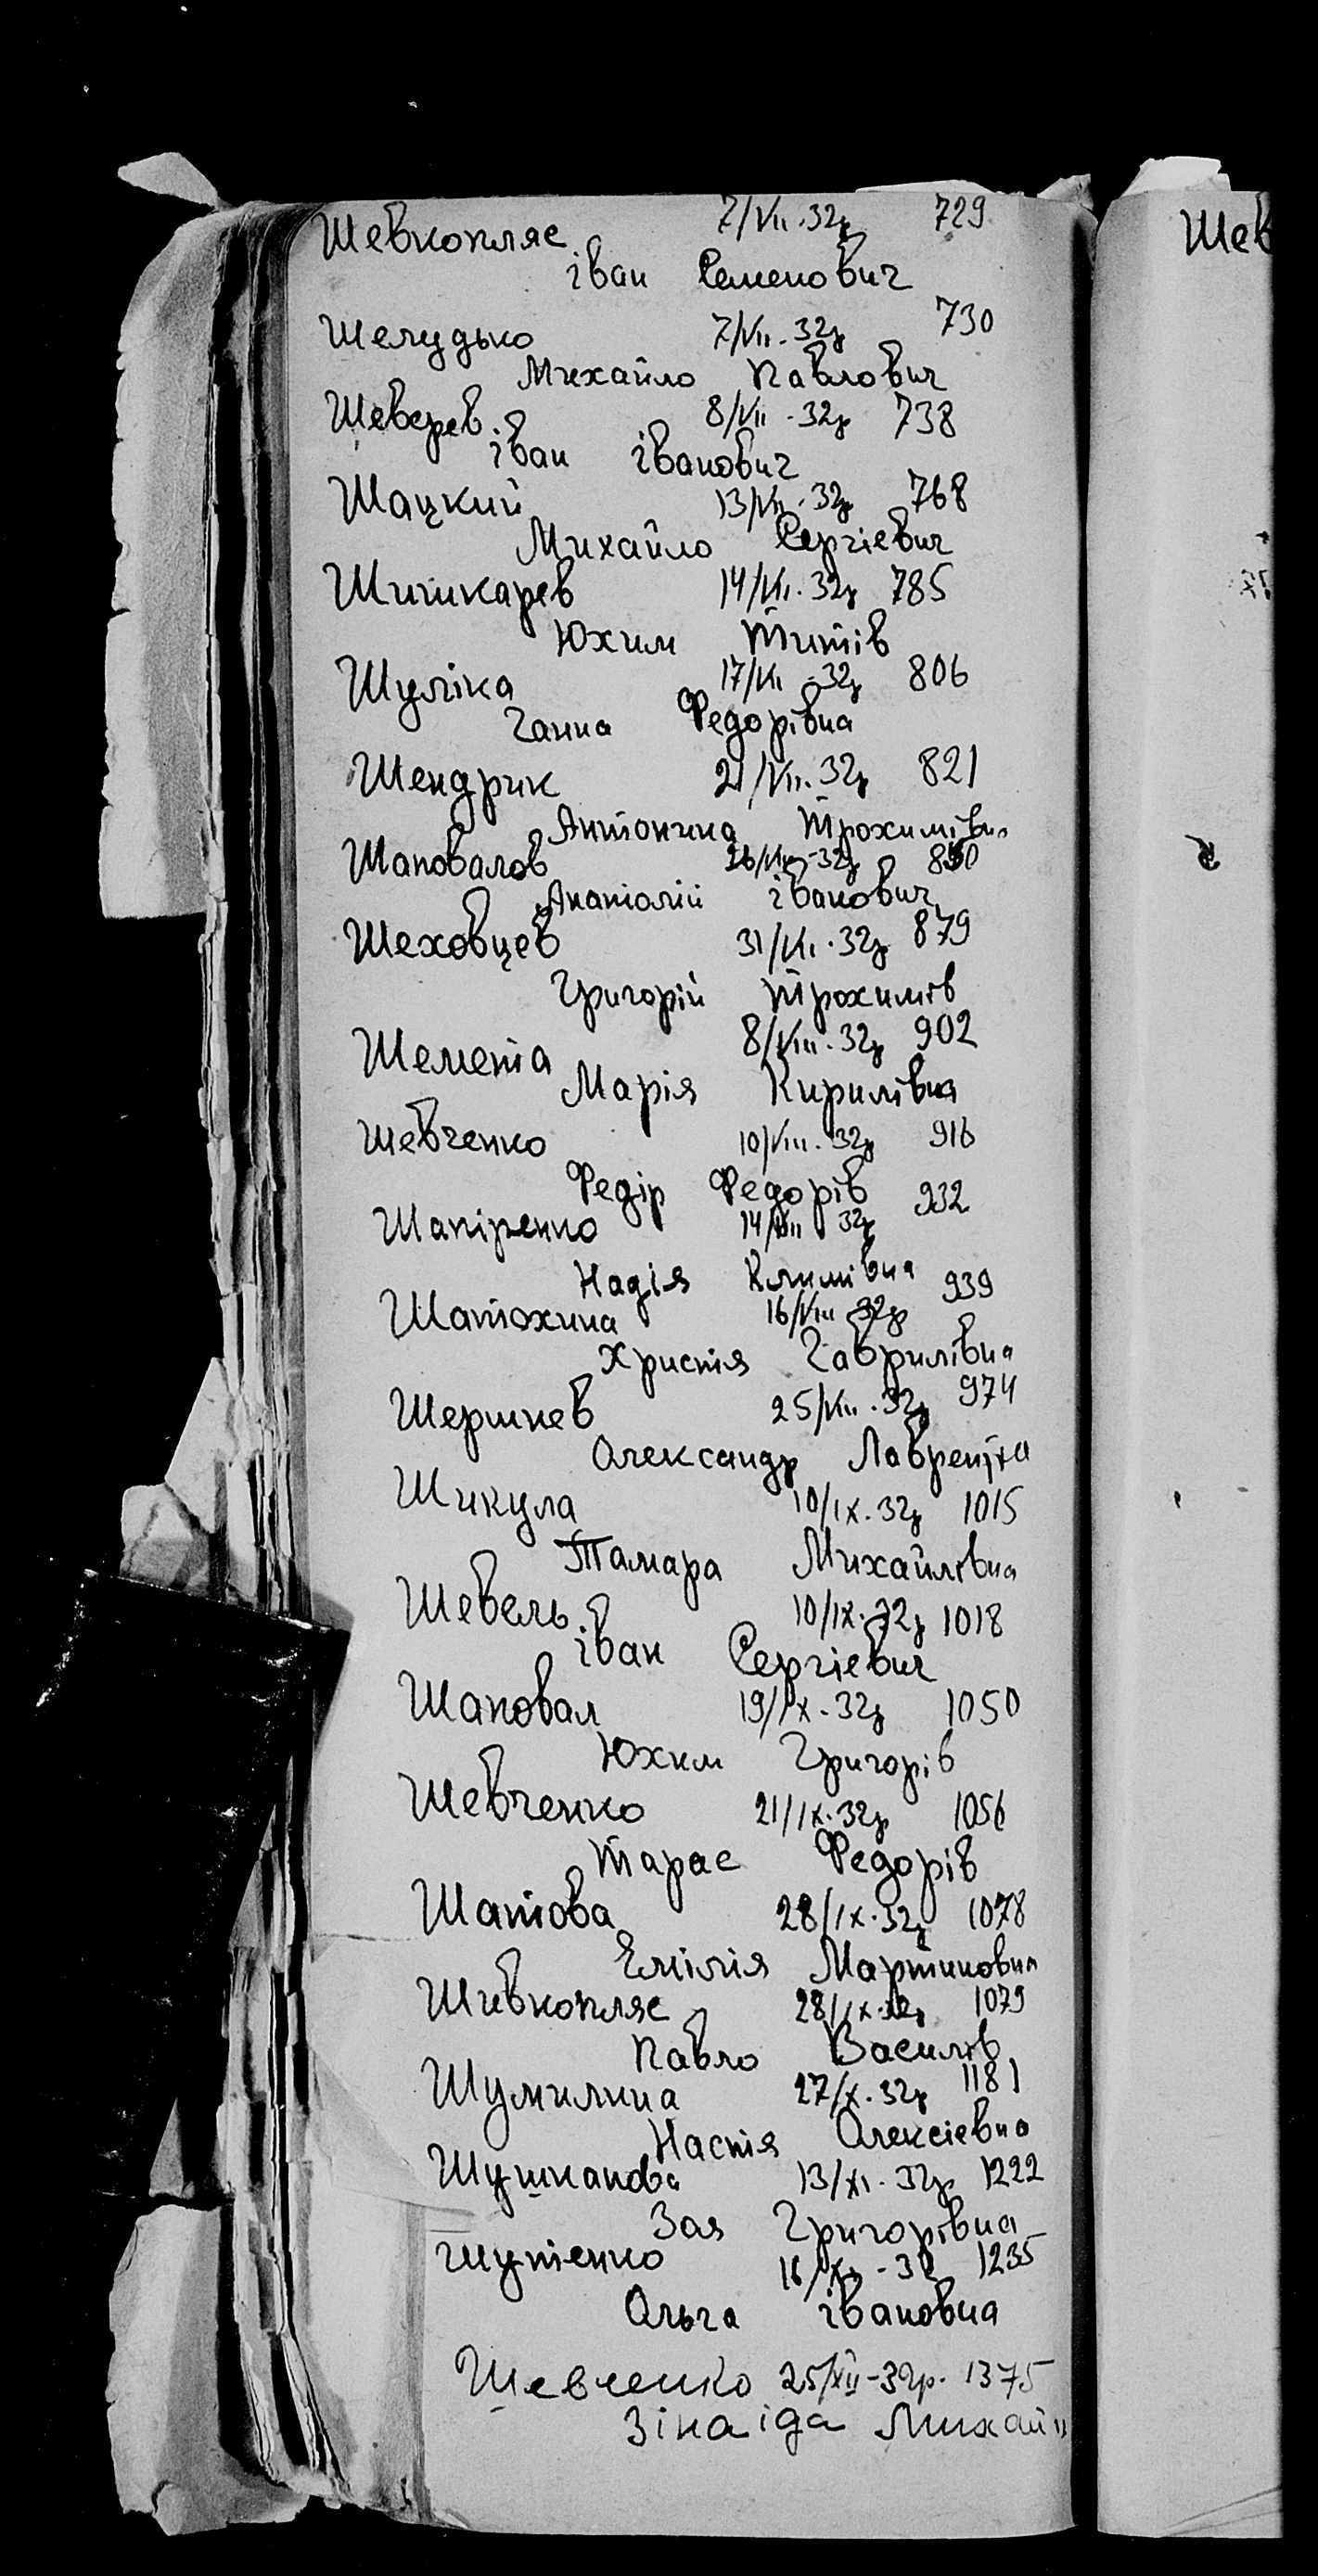 Шевкопляс 7/VII.32р 729
іван Семенович
Шелудько 7/VII.32р 730
Михайло Павлович
Шеверев 8/VII.32р 738
іван іванович
Шацкий 13/VII.32р 768
Михайло Сергієвич
Шишкарев 14/VII.32р 785
Юхим Титів
Шуліка 17/VII 32р 806
Ганна Федорівна
Шендрик 21/VII.32р 821
Антонина Трохимівна
Шаповалов 26/VII-32р 850
Анатолій іванович
Шеховцев 31/VII.32р 879
Григорій Трохимів
Шемета 8/VIII.32р 902
Марія Кирилівна
Шевченко 10/VIII.32р 916
Федір Федорів
Шапіренко 14/VIII 32р 932
Надія Климівна
Шатохина 16/VIII 32р 939
Христя Гаврилівна
Шершнев 25/VIII.32р 974
Олександр
Шикула 10/IX.32р 1015
Тамара Михайлівна
Шевель 10/IX.32р 1018
іван Сергієвич
Шаповал 19/IX.32р 1050
Юхим Григорів
Шевченко 21/IX.32р 1056
Тарас Федорів
Шатова 28/IX.32р 1078
Емілія Мартиновна
Шивкопляс 28/IX.32р 1079
Павло Василів
Шумилина 27/X.32р 1181
Настя Олексієвна
Шушканова 13/XI.32р 1222
Зоя Григорівна
Шутенко 16/XI-32 1235
Ольга івановна
Шевченко 25/XII-32р. 1375
Зінаіда Михай
Шев